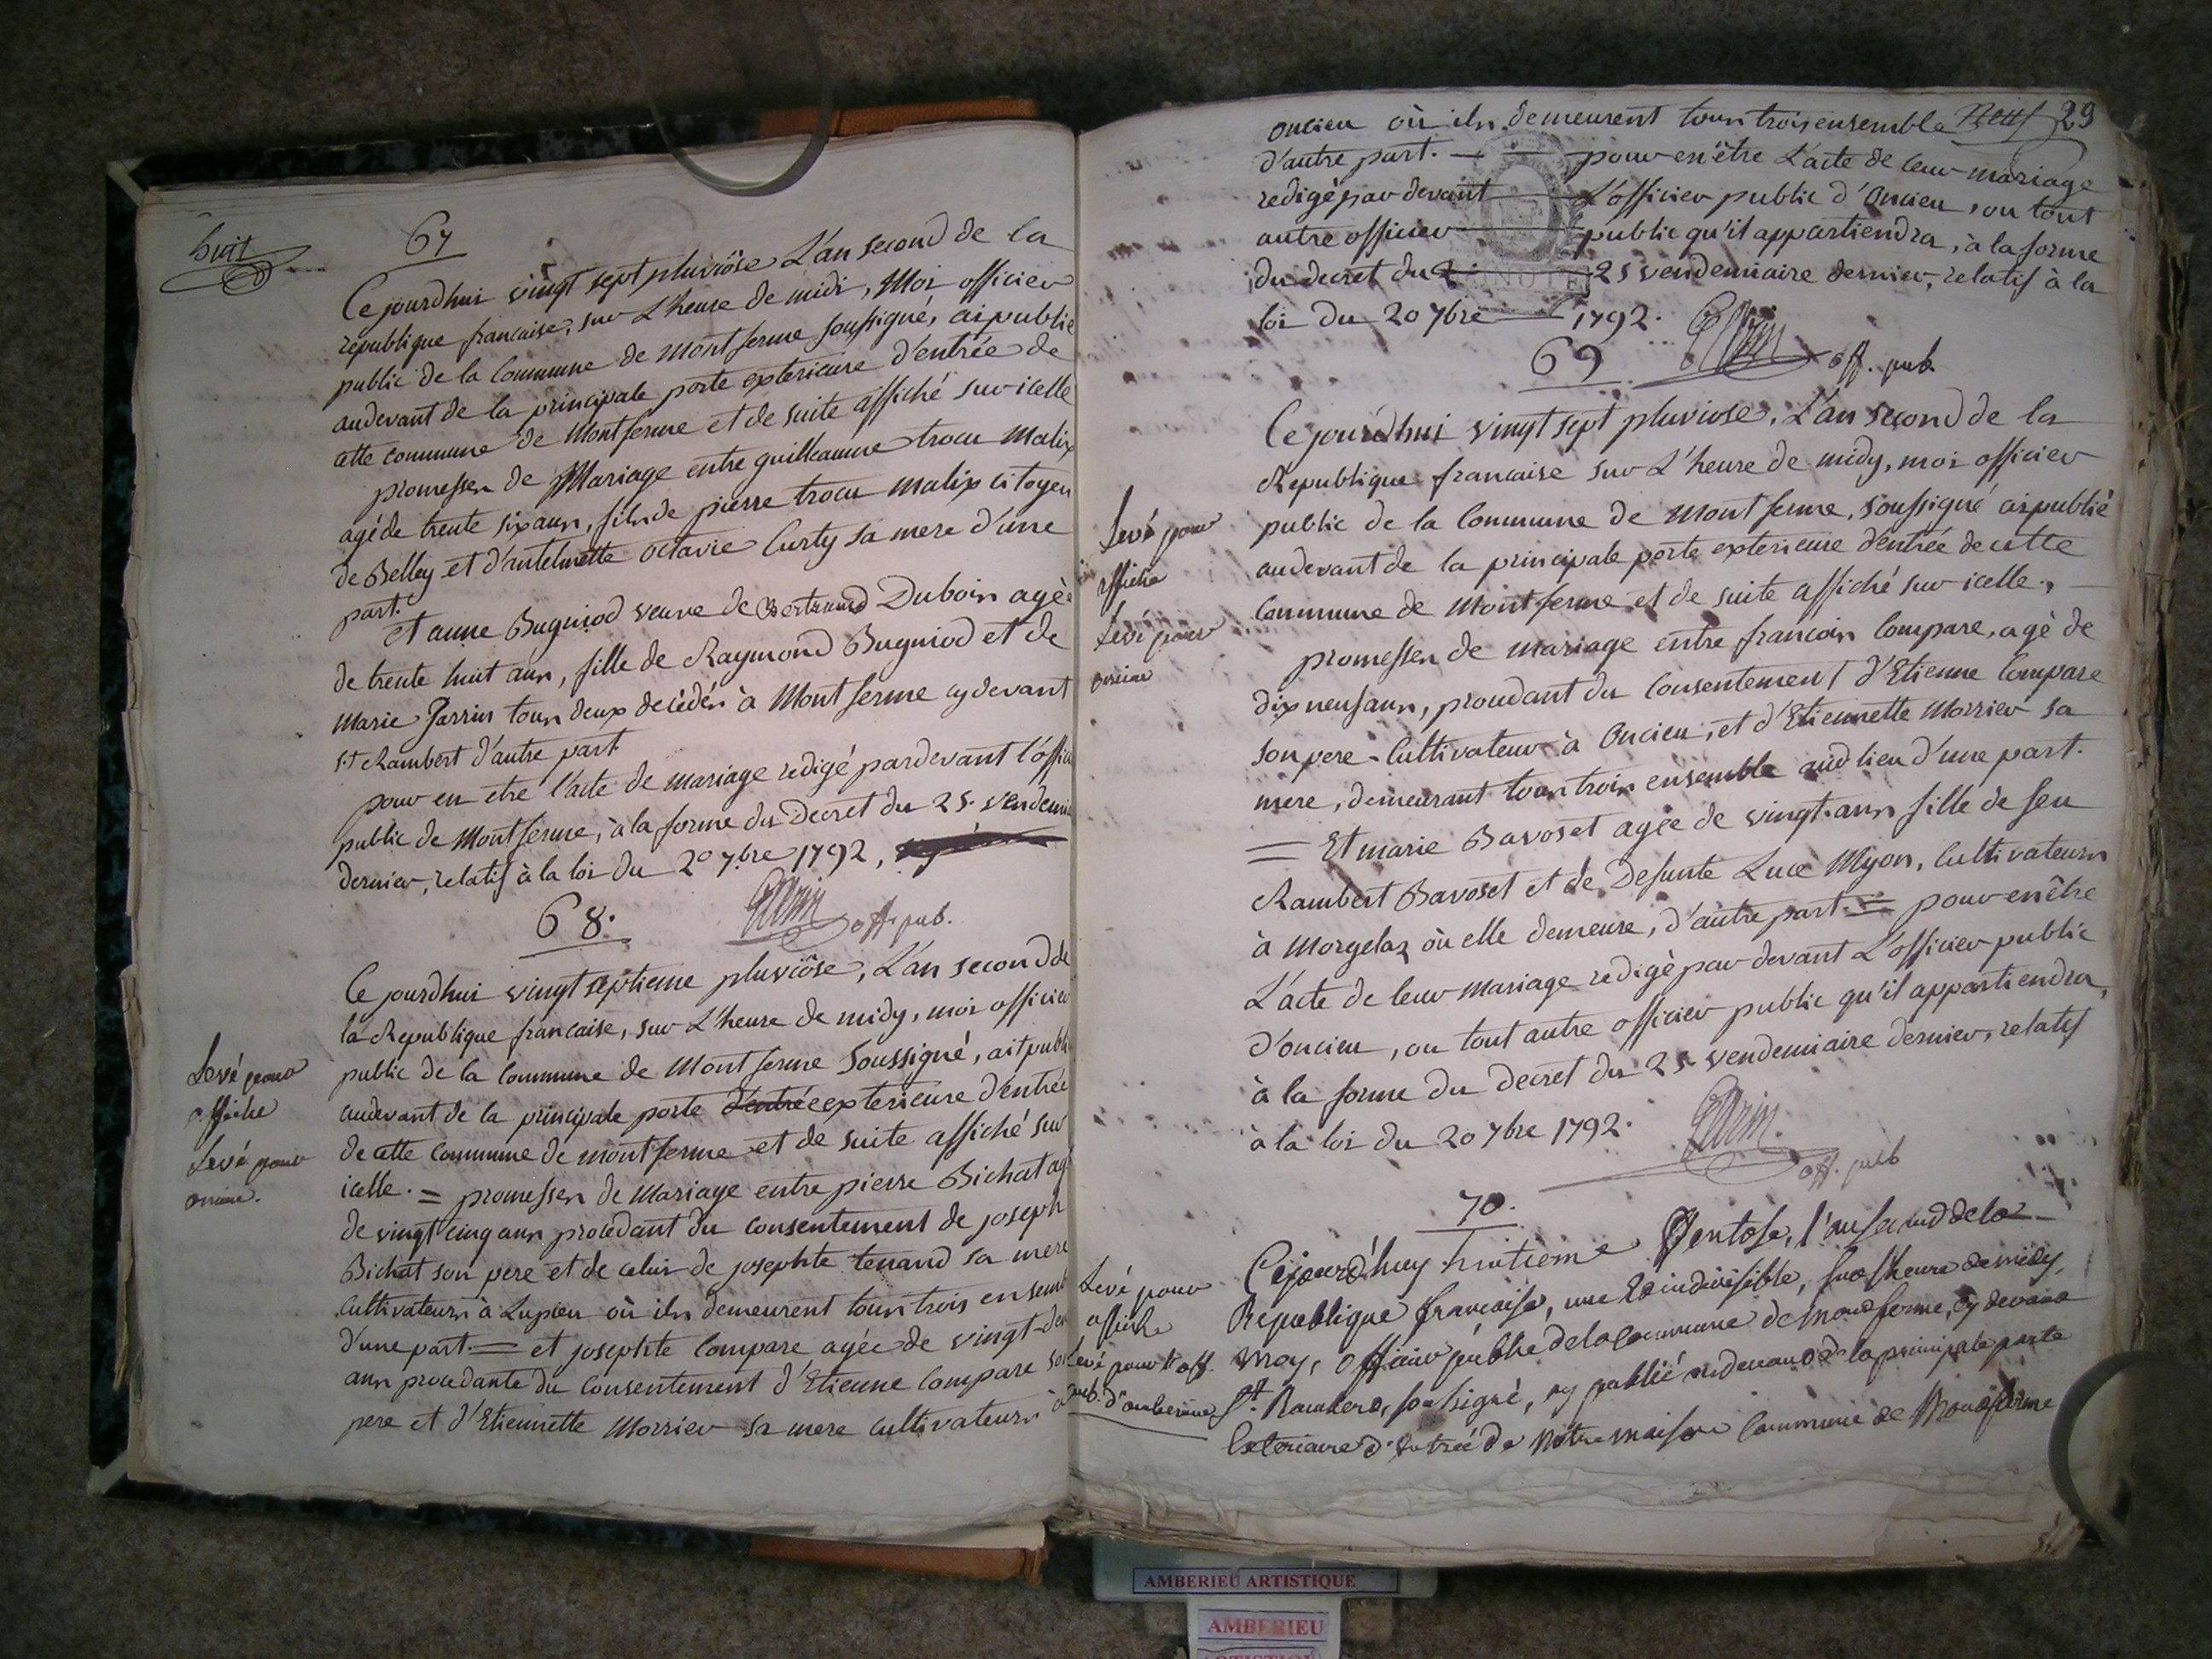 huit
67
Ce jourdhui vingt sept pluviôse L'an second de la
republique francaise, sur L'heure de midi, Moi officier
public de la Commune de Montferme soussigné, ai publié
audevant de la principale porte exterieure d'entrée de
cette commune de Montferme et de suite affiché sur icelle
promesses de Mariage entre guilleaume trocu Malix
agé de trente six ans, fils de pierre trocu malix citoyen
de Belley et d'antelmette octavie Curty sa mere d'une
part.
et anne Bugniod veuve de Bertrand Dubois agée
de trente huit ans, fille de Raymond Bugniod et de
Marie Jarrin tous deux decédés à Montferme cy devant
St Rambert d'autre part.
pour en etre l'acte de mariage redigé pardevant l'offici
public de Montferme, à la forme du Decret du 25. vendemi
dernier, relatif à la loi du 20 7bre 1792,
off. pub.
68.
Levé pour
affiche
Levé pour
oncieu.
Ce jourdhui vingt septieme pluviôse, L'an second de
la Republique francaise, sur L'heure de midy, moi officier
public de la Commune de Montferme Soussigné, ait publi
audevant de la principale porte d'entrée exterieure d'entrée
de cette commune de montferme et de suite affiché sur
icelle. = promesses de Mariage entre pierre Bichat ag
de vingt cinq ans procedant du consentement de joseph
Bichat son pere et de celui de josephte tenand sa mere
cultivateurs à Lupieu où ils demeurent tous trois ensemb
d'une part. = et josephte Compare agée de vingt deu
ans procedante du Consentement d'Etienne Compare son
pere et d'Etiennette Morrier sa mere cultivateurs à
Neuf 29
oncieu où ils demeurent tous trois ensemble
d'autre part. — pour en être L'acte de leur mariage
redigé par devant L'officier public d'Oncieu, ou tout
autre officier public qu'il appartiendra, à la forme
du decret du 25 vendemiaire dernier, relatif à la
loi du 20 7bre 1792.
off. pub.
69
Levé pour
affiche
Levé pour
oncieu
Ce jourd'hui vingt sept pluviose, L'an second de la
Republique francaise sur L'heure de midy, moi officier
public de la Commune de Montferme, soussigné ai publié
audevant de la principale porte exterieure d'entrée de cette
Commune de Montferme et de suite affiché sur icelle,
promesses de mariage entre francois Compare, agé de
dix neuf ans, procedant du Consentement d'Etienne Compare
son pere Cultivateur à Oncieu, et d'Etiennette Morrier sa
mere, demeurant tous trois ensemble aud lieu d'une part.
= Et marie Bavoset agée de vingt ans fille de feu
Rambert Bavoset et de Defunte Luce Myon, Cultivateurs
à Morgelaz où elle demeure, d'autre part. = pour en être
L'acte de leur mariage redigé par devant L'officier public
d'oncieu, ou tout autre officier public qu'il appartiendra,
à la forme du decret du 25 vendemiaire dernier, relatif
à la loi du 20 7bre 1792.
off. pub
70.
Levé pour
affiche
Levé pour l'off.
pub. d'amberieu
Cejourd'huy huitieme Ventose, l'an second de la
Republique francaise, une & indivisible, sur l'heure de midy,
moy, officier public de la Commune de Montferme, cy devant
St. Rambert, soussigné, ay publié audevant de la principale porte
Exterieure d'Entrée de Notre maison Commune de Montferme
AMBERIEU ARTISTIQUE
AMBERIEU